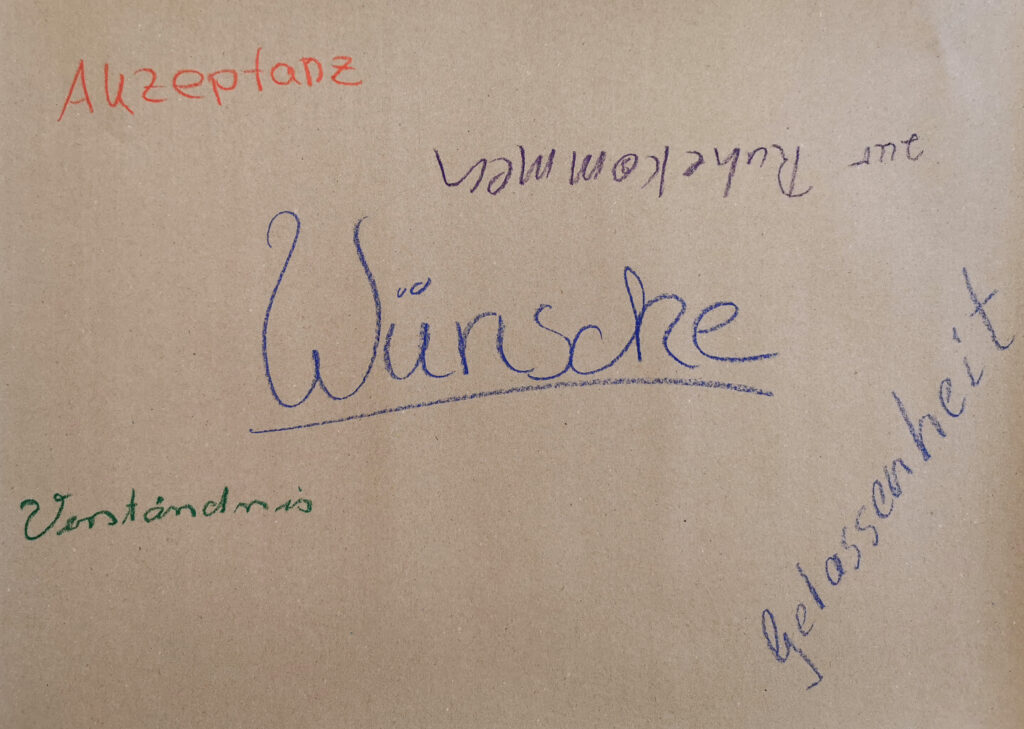 Akzeptanz
zur Ruhe kommen
Wünsche
Verständnis
Gelassenheit